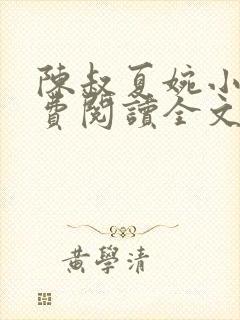 陳叔夏婉小
費閱讀全文
黃學清